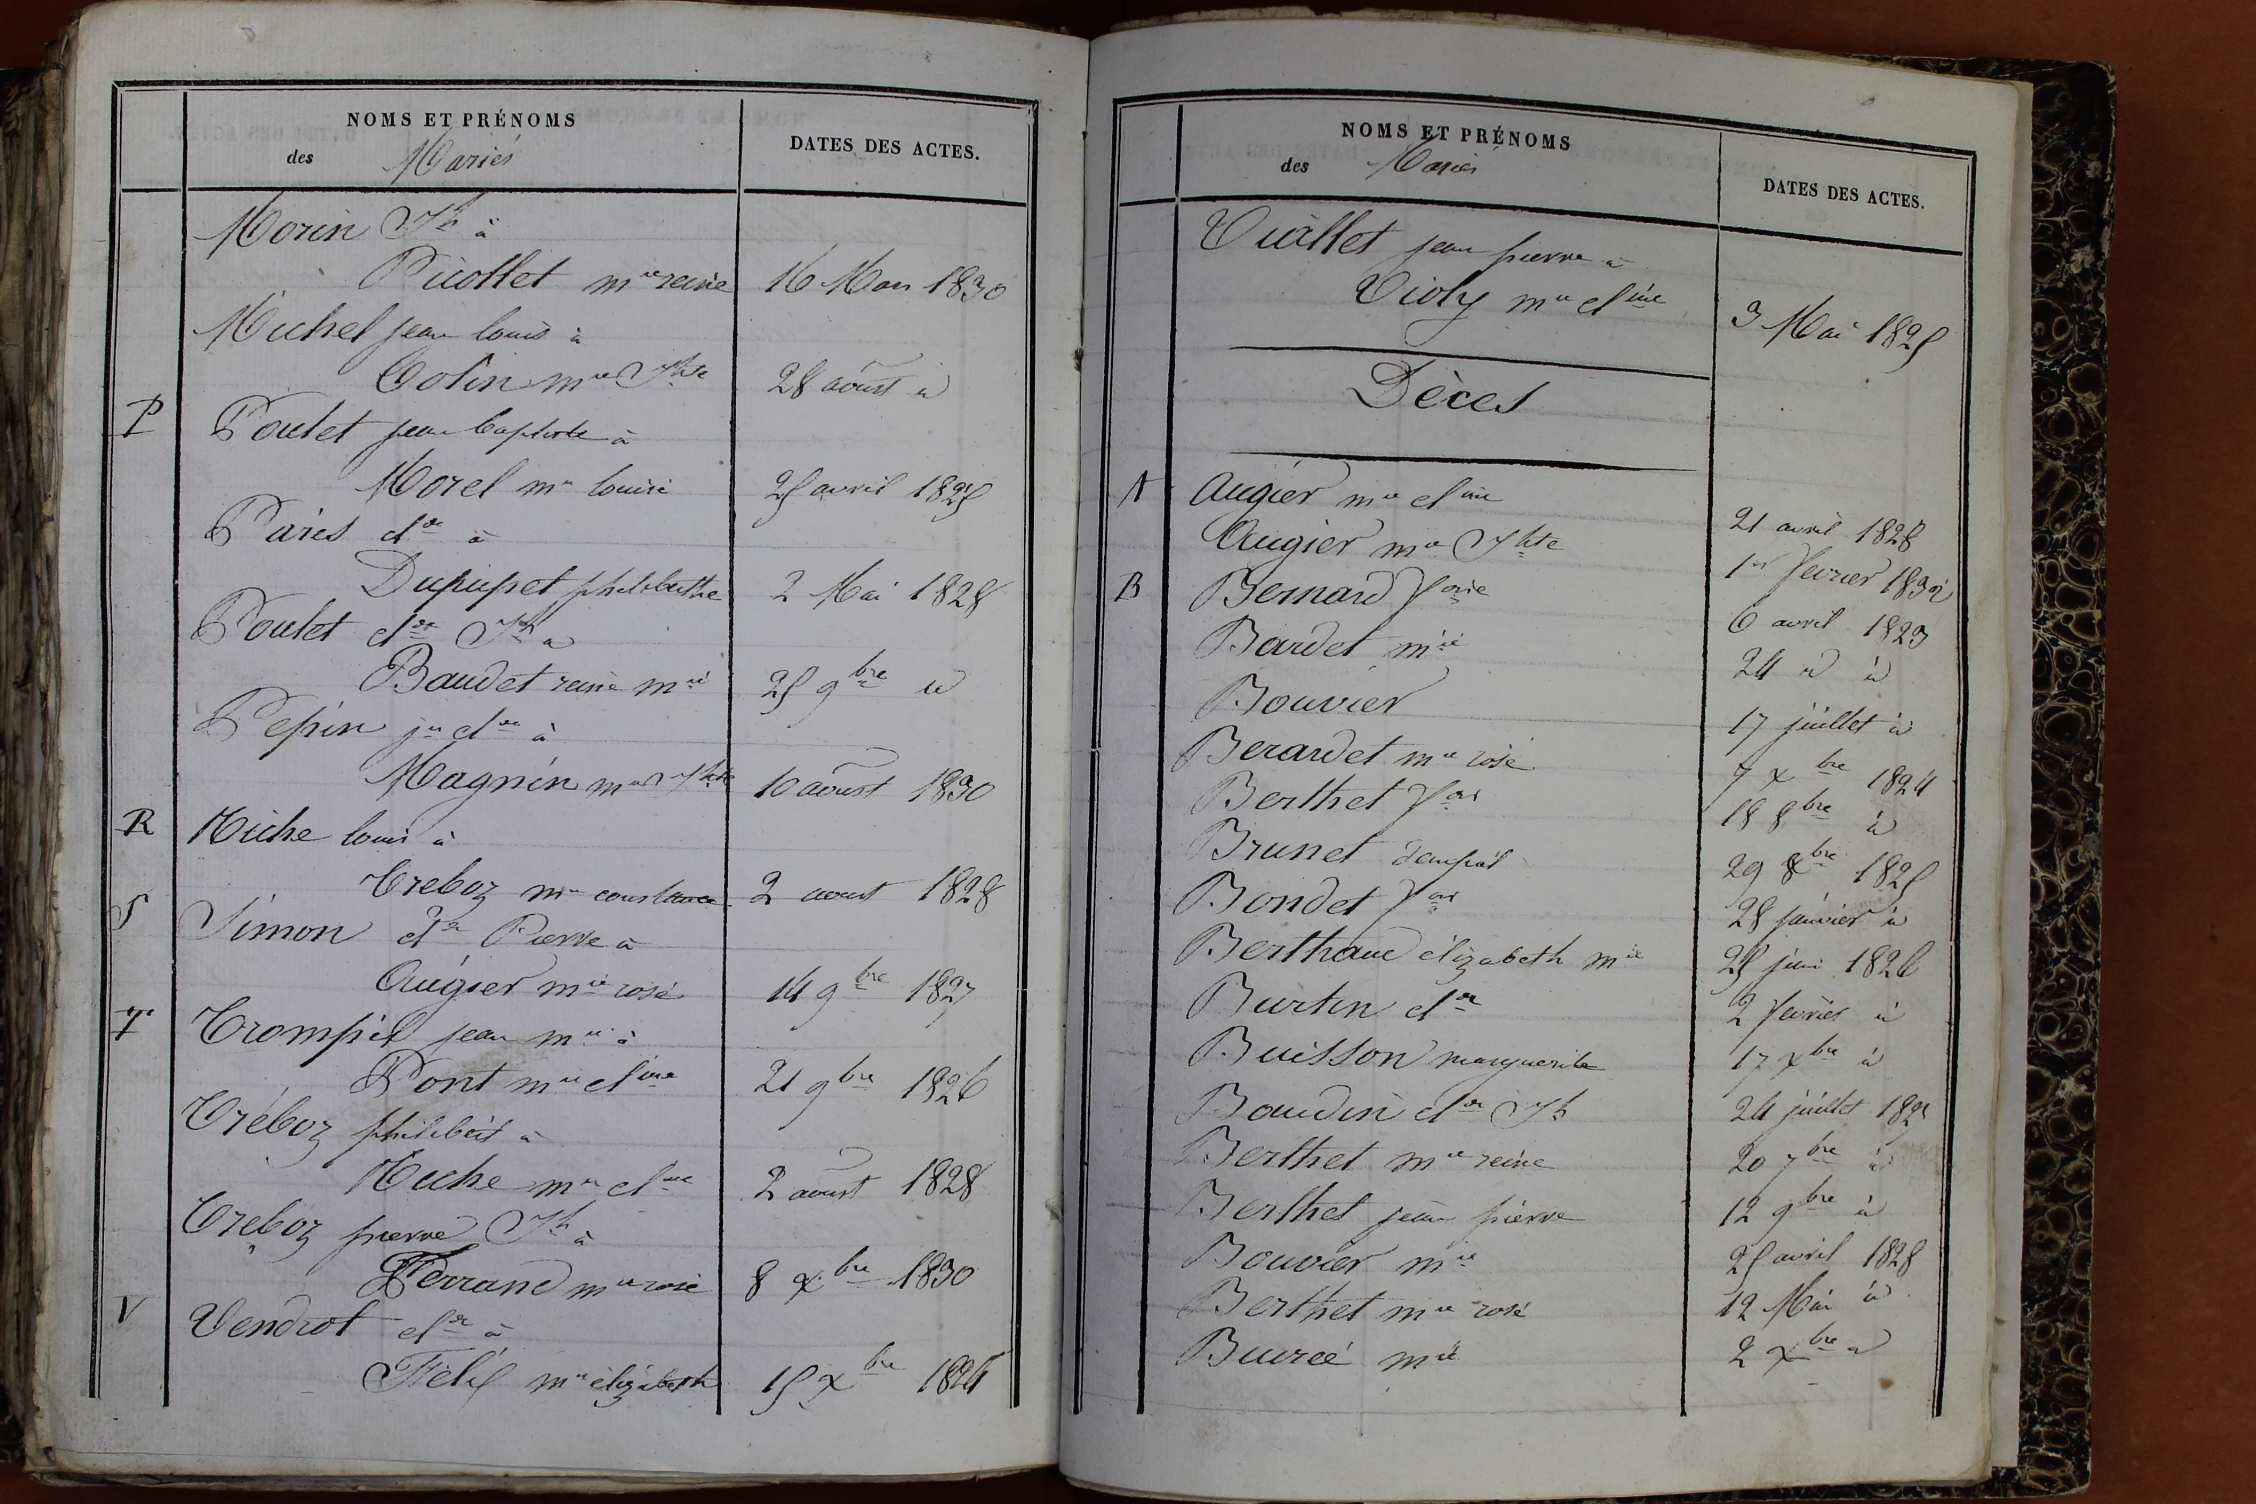 NOMS ET PRÉNOMS
des Mariés
DATES DES ACTES.
Morin Jh à
Picollet mie reine 16 Mars 1830
Michel jean louis à
Colin mie Jhte 28 aoust id
P Poulet jean baptiste à
Morel mie louise 25 avril 1825
Paris clde à
Dupupet philiberthe 2 Mai 1828
Poulet clde Jh à
Baudet reine mie 25 9bre id
Pepin jn clde à
Magnin mie Jhte 10 aoust 1830
R Riche louis à
Treboz mie constance 2 aoust 1828
S Simon clde Pierre à
Augier mie rose 14 9bre 1827
T Trompil jean mie à
Pont mie cline 21 9bre 1826
Tréboz philibert à
Riche mie cline 2 aoust 1828
Treboz pierre Jh à
Ferrand mie rose 8 xbre 1830
V Vendrot clde à
Félix mie élizabeth 15 xbre 1824
NOMS ET PRÉNOMS
des Mariés
DATES DES ACTES.
Viallet jean pierre à
Violy mie cline 3 Mai 1825
Décès
A Augier mie cline 21 avril 1828
Augier mie Jhte 1er fevrier 1832
B Bernard foise 6 avril 1823
Bardet mie 24 id id
Bouvier 17 juillet id
Berardet mie rose 7 xbre 1824
Berthet fois 18 8bre id
Brunet 29 8bre 1825
Bondet fois 28 janvier id
Berthaud élizabeth mie 25 juin 1826
Burtin clde 2 fevrier id
Buisson marguerite 17 xbre id
Baudin clde Jh 24 juillet 1827
Berthet mie reine 20 7bre id
Berthet jean pierre 12 9bre id
Bouvier mie 25 avril 1828
Berthet mie rose 12 Mai id
Buireé mie 2 xbre id